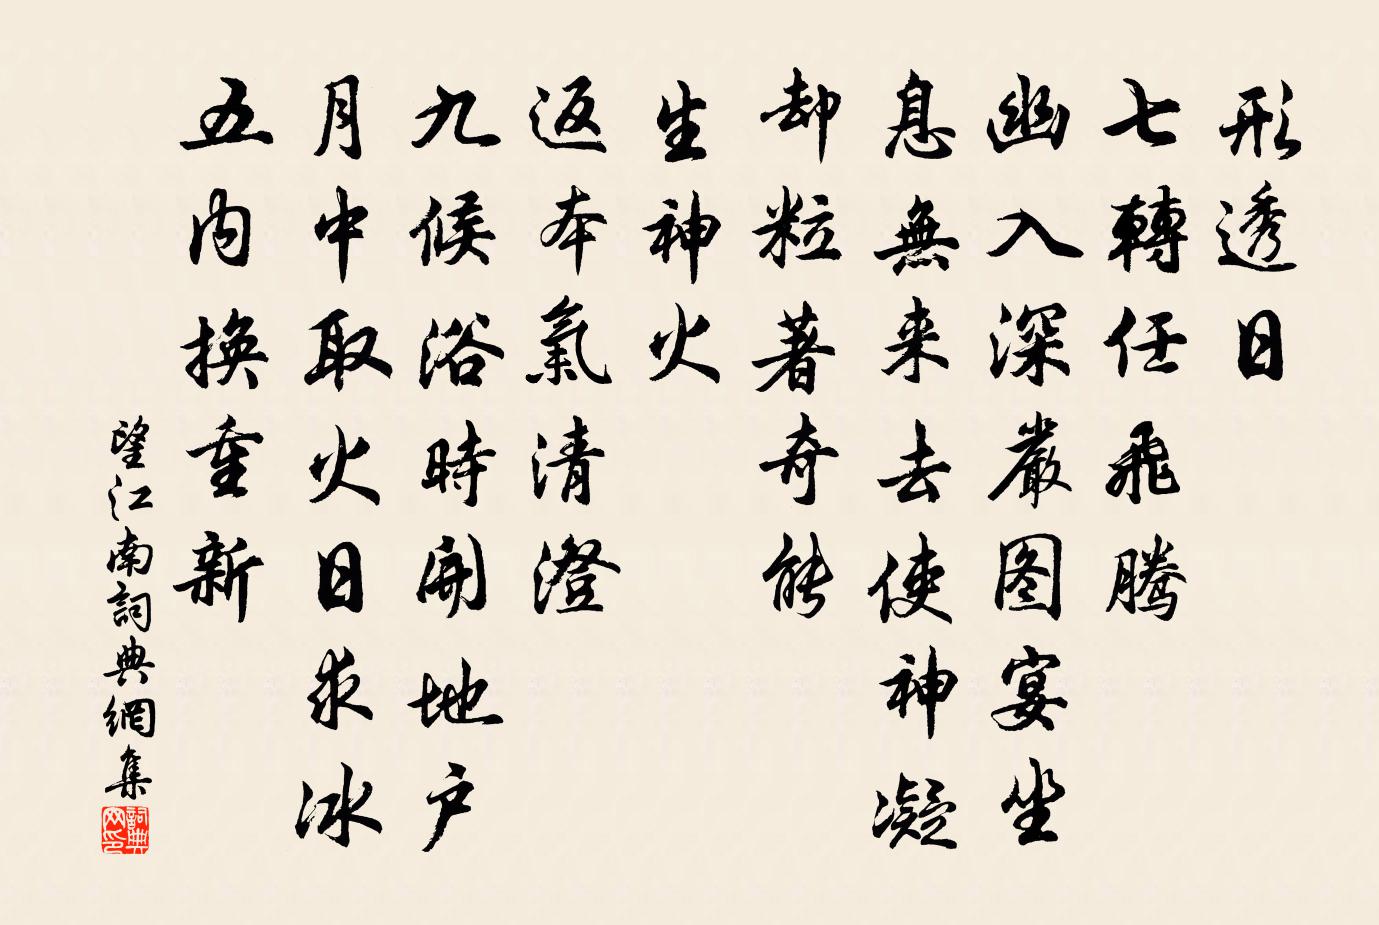 形透日
七轉任飛騰
幽入深嚴图宴坐
息無来去使神凝
却粒著奇能
生神火
返本氣清澄
九候浴時開地户
月中取火日求冰
五内換重新
望江南詞典網集
詞典网印